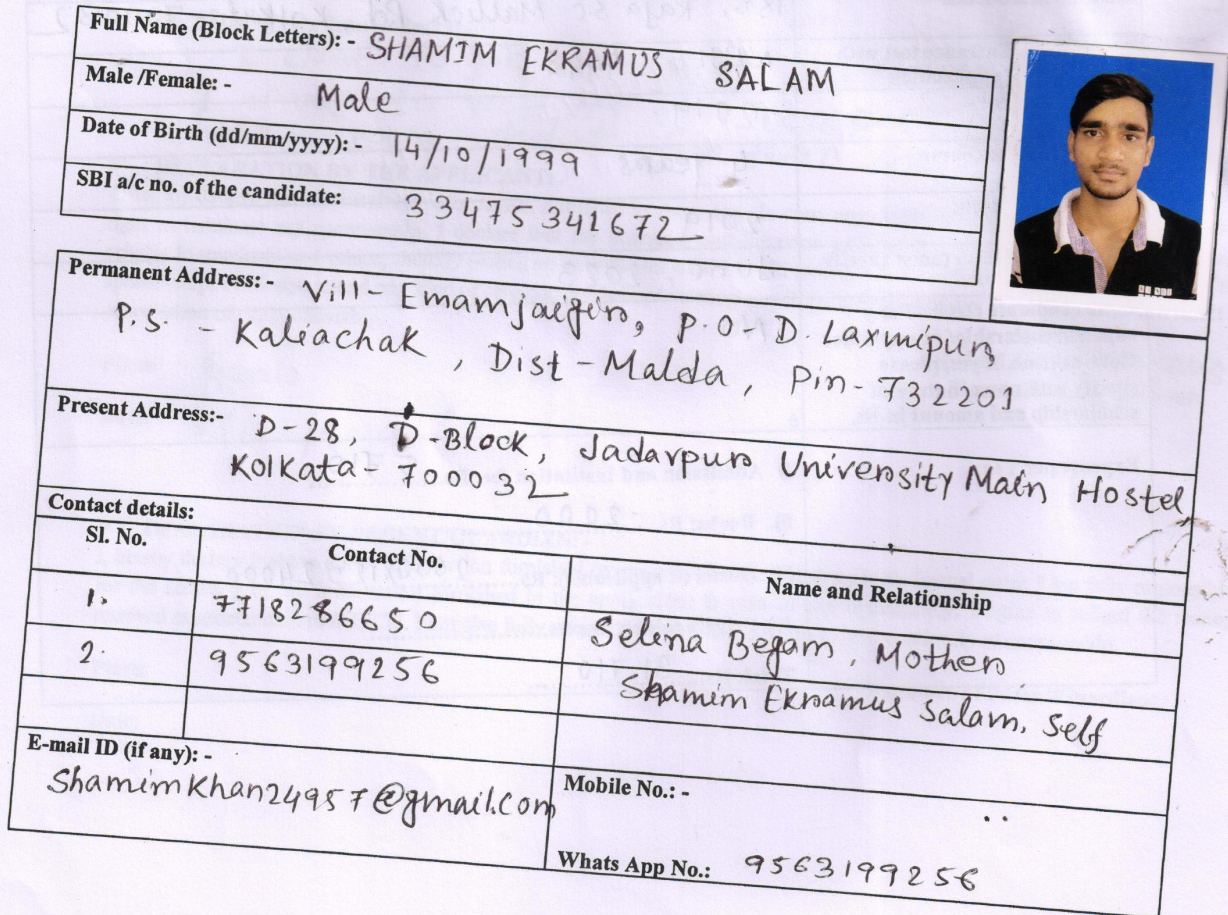 Full Name (Block Letters): - SHAMIM EKRAMUS SALAM
Male /Female: - Male
Date of Birth (dd/mm/yyyy): - 14/10/1999
SBI a/c no. of the candidate: 33475341672
Permanent Address: - Vill- Emamjaigir, P.O- D. Laxmipur
P.S. - Kaliachak, Dist - Malda, Pin-732201
Present Address:- D-28, D-Block, Jadavpur University Main Hostel,
Kolkata- 700032
Contact details:
Sl. No. Contact No. Name and Relationship
1. 7718286650 Selina Begam, Mother
2. 9563199256 Shamim Ekramus Salam, Self
E-mail ID (if any): -
ShamimKhan24957@gmail.com
Mobile No.: -
Whats App No.: 9563199256